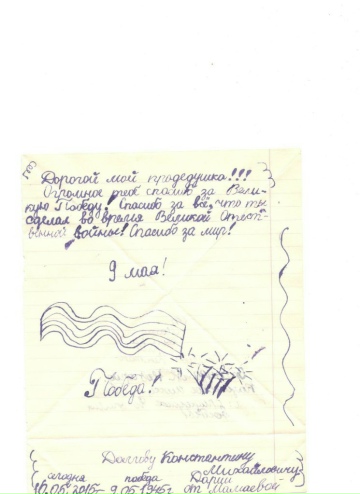 Дорогой мой прадедушка!!!
Огромное тебе спасибо за Вели-
кую Победу! Спасибо за всё, что ты
сделал во время Великой Отест-
венной войны! Спасибо за мир!
9 мая!
Победа!
Долгову Константину
Михайловичу
сегодня победа Дарии
10.05.2015- 9.05.1945г. от Мамаевой